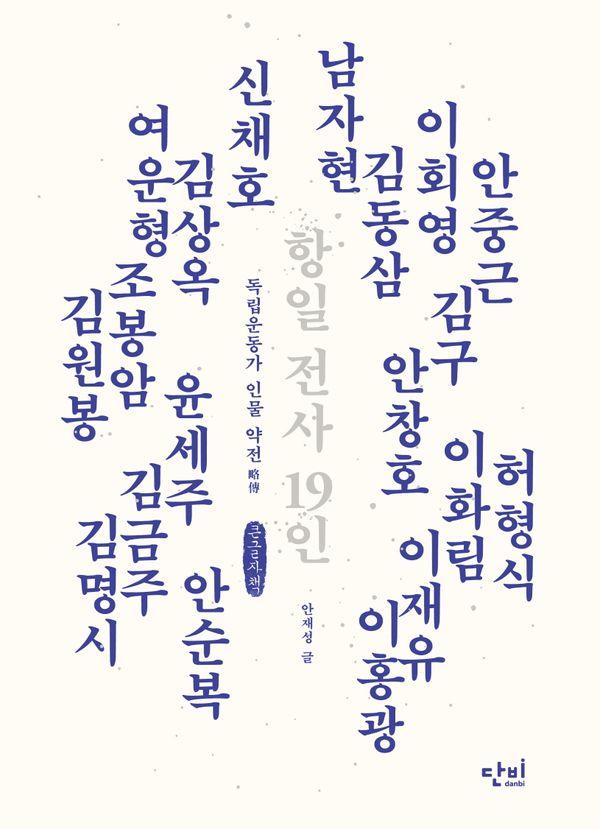 안중근
이회영
김구
남자현
김동삼
안창호
허형식
이화림
이재유
이홍광
항일 전사 19인
독립운동가 인물 약전 略傳
큰글자책
안재성 글
신채호
여운형
김상옥
조봉암
김원봉
윤세주
김금주
김명시
안순복
단비
danbi